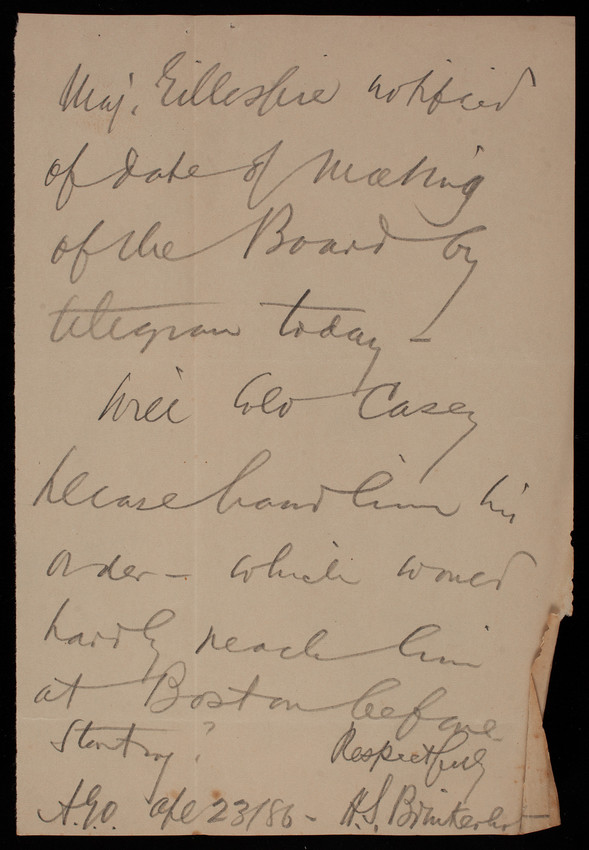 Maj. Gillespie notified
of date of meeting
of the Board by
telegram today -
Will Col Casey
please hand him his
order - which would
hardly reach him
at Boston before
starting?
Respectfully
A.G.O. Apl 23/86 - H.S. Brinkerhoff